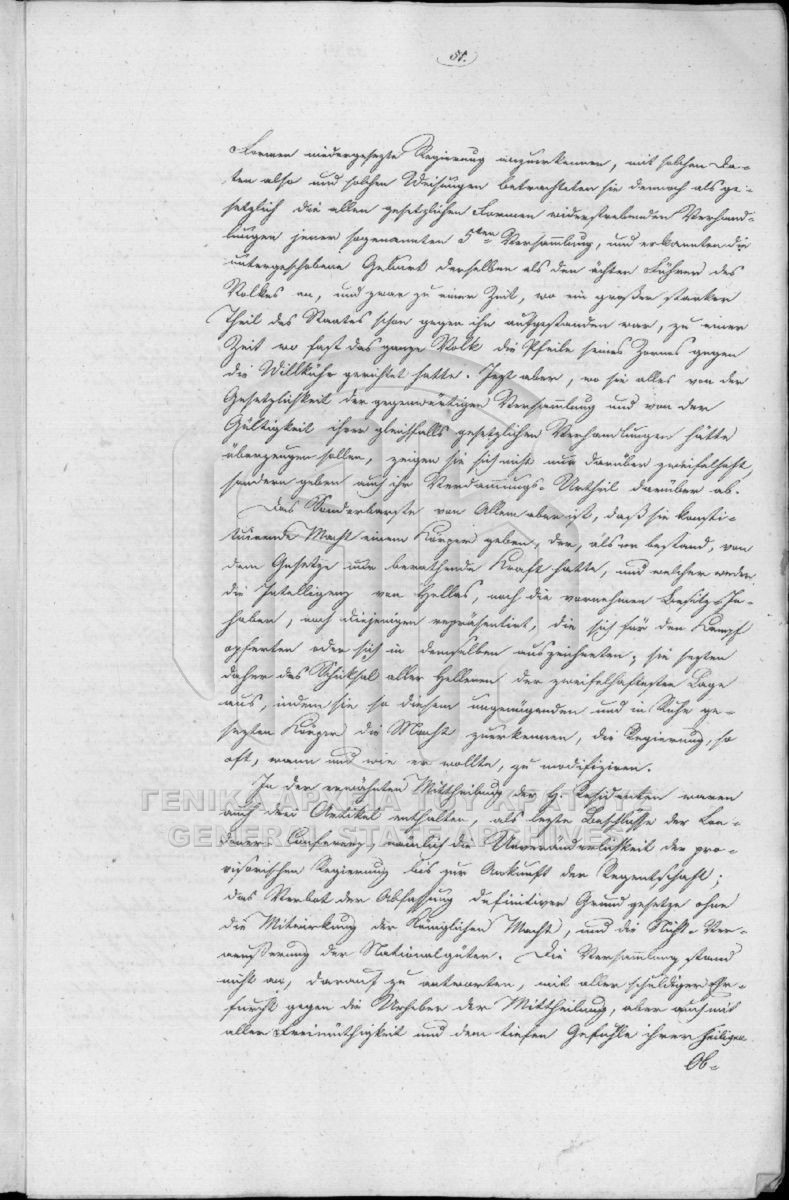 51.
Formen niedergesezte Regierung anzuerkennen, mit solchen Da-
ten also und solchen Weisungen betrachteten sie dennoch als ge-
setzlich die allen gesetzlichen Formen widerstrebenden Verhand-
lungen jener sogenannten 5ten Versammlung, und erkannten die
untergeschobene Geburt derselben als den ächten Führer des
Volkes an, und zwar zu einer Zeit, wo ein großer starker
Theil des Staates schon gegen ihn aufgestanden war, zu einer
Zeit wo fast das ganze Volk die Pfeile seines Zornes gegen
die Willkühr gerichtet hatte. Jezt aber, wo sie alles von der
Gesetzlichkeit der gegenwärtigen Versammlung und von der
Gültigkeit ihrer gleichfalls gesetzlichen Verhandlungen hätte
überzeugen sollen, zeigen sie sich nicht nur darüber zweifelhaft,
sondern geben auch ihr Verdammungs-Urtheil darüber ab.
Das Sonderbarste von Allem aber ist, daß sie konsti-
tuirende Macht einem Körper geben, der, als er bestand, von
dem Gesetze nur berathende Kraft hatte, und welcher weder
die Intelligenz von Hellas, noch die vornehmen Besitz-In-
haber, noch diejenigen repräsentirt, die sich für den Kampf
opferten oder sich in demselben auszeichneten; sie sezten
daher das Schicksal aller Hellenen der zweifelhaftesten Lage
aus, indem sie so diesem ungenügenden und in Ruhe ge-
sezten Körper die Macht zuerkennen, die Regierung, so
oft, wann und wie er wollte, zu modifiziren.
In der erwähnten Mittheilung der H. Residenten waren
auch drei Artikel enthalten, als lezte Beschlüsse der Lon-
doner Conferenz, nämlich die Unveränderlichkeit der pro-
visorischen Regierung bis zur Ankunft der Regentschaft;
das Verbot der Abfassung definitiver Grundgesetze ohne
die Mitwirkung der Königlichen Macht, und die Nicht-Ver-
äußerung der Nationalgüter. Die Versammlung stand
nicht an, darauf zu antworten, mit aller schuldiger Ehr-
furcht gegen die Urheber der Mittheilung, aber auch mit
aller Freimüthigkeit und dem tiefen Gefühle ihrer heiligen
Ob-
ΓΕΝΙΚΑ ΑΡΧΕΙΑ ΤΟΥ ΚΡΑΤΟΥΣ
GENERAL STATE ARCHIVES